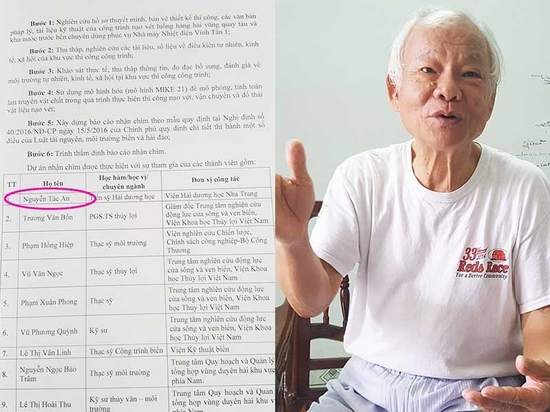 Bước 1: Nghiên cứu hồ sơ thuyết minh, bản vẽ thiết kế thi công, các văn bản
pháp lý, tài liệu kỹ thuật của dự án nạo vét luồng hàng hải vũng quay tàu và
khu nước trước bến chuyên dùng phục vụ Nhà máy Nhiệt điện Vĩnh Tân 1;
Bước 2: Thu thập, nghiên cứu các tài liệu, số liệu về điều kiện tự nhiên, kinh
tế, xã hội tại khu vực thi công công trình.
Bước 3: Khảo sát thực tế, thu thập thông tin, đo đạc bổ sung, đánh giá về
môi trường tự nhiên, kinh tế, xã hội tại khu vực thi công công trình.
Bước 4: Sử dụng mô hình hóa (mô hình MIKE 21) để mô phỏng, tính toán
lan truyền vật chất trong quá trình thực hiện thi công nạo vét, vận chuyển và đổ thải
vật liệu nạo vét;
Bước 5: Xây dựng báo cáo nhận chìm theo mẫu quy định tại Nghị định số
40/2016/NĐ-CP ngày 15/5/2016 của Chính phủ quy định chi tiết thi hành một số
điều của Luật tài nguyên, môi trường biển và hải đảo;
Bước 6: Trình thẩm định báo cáo nhận chìm.
Dự án nhận chìm được thực hiện với sự tham gia của các thành viên gồm:
TT Họ tên Học hàm/học vị/ chuyên ngành Đơn vị công tác
Nguyễn Tác An Tiến sỹ Hải dương học Viện Hải dương học Nha Trang
2. Trương Văn Bốn PGS.TS thủy lợi Giám đốc Trung tâm nghiên cứu
động lực cửa sông và ven biển,
Viện Khoa học Thủy lợi Việt Nam
3. Phạm Hồng Hiệp Thạc sỹ môi trường Viện nghiên cứu Chiến lược,
Chính sách công nghiệp-Bộ Công
Thương
4. Vũ Văn Ngọc Thạc sỹ thủy lợi Trung tâm nghiên cứu động lực
cửa sông và ven biển, Viện Khoa
học Thủy lợi Việt Nam
5. Phạm Xuân Phong Thạc sỹ Trung tâm nghiên cứu động lực
cửa sông và ven biển, Viện Khoa
học Thủy lợi Việt Nam
6. Vũ Phương Quỳnh Kỹ sư Trung tâm nghiên cứu động lực
cửa sông và ven biển, Viện Khoa
học Thủy lợi Việt Nam
7. Lê Thị Vân Linh Thạc sỹ Công trình biển Viện Kỹ thuật biển
8. Nguyễn Ngọc Bảo Trâm Thạc sỹ môi trường Trung tâm Quy hoạch và Quản lý
tổng hợp vùng duyên hải khu vực
phía Nam.
9. Lê Thị Hoài Thu Kỹ sư thủy văn – môi trường Trung tâm Quy hoạch và Quản lý
tổng hợp vùng duyên hải khu vực
phía Nam.
33
Reds Race
For a Better Community